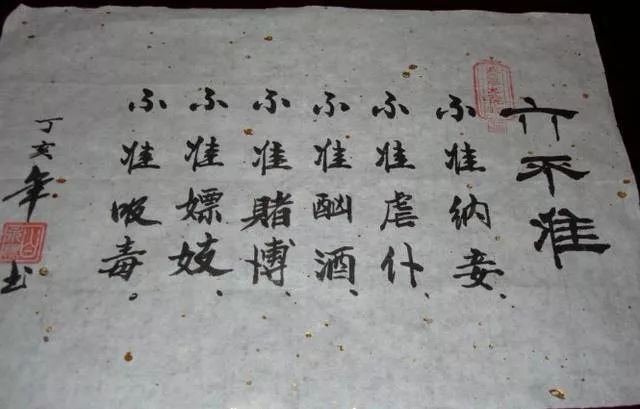 六不准
不准纳妾、
不准虐仆、
不准酗酒、
不准赌博、
不准嫖妓、
不准吸毒。
丁亥年
书